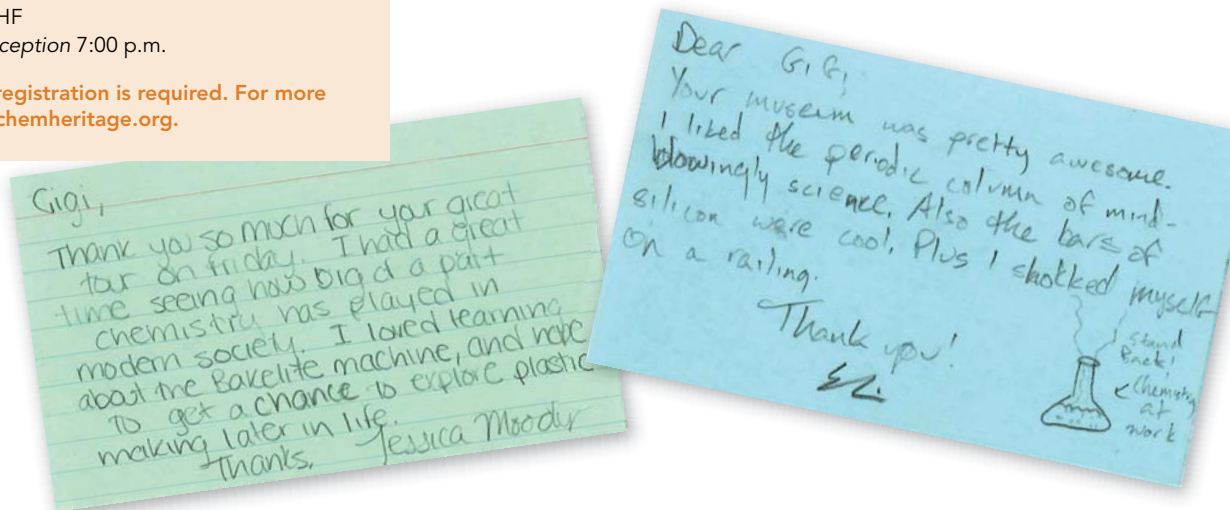 HF
ception 7:00 p.m.
registration is required. For more
chemheritage.org.
Gigi,
Thank you so much for your great
tour on friday. I had a great
time seeing how big of a part
chemistry has played in
modern society. I loved learning
about the Bakelite machine, and hope
to get a chance to explore plastic
making later in life.
Thanks, Jessica Moody
Dear GiGi,
Your museum was pretty awesome.
I liked the periodic column of mind-
blowingly science. Also the bars of
silicon were cool. Plus I shokked myself
on a railing.
Thank you!
Stand
Back!
Chemistry
at
work